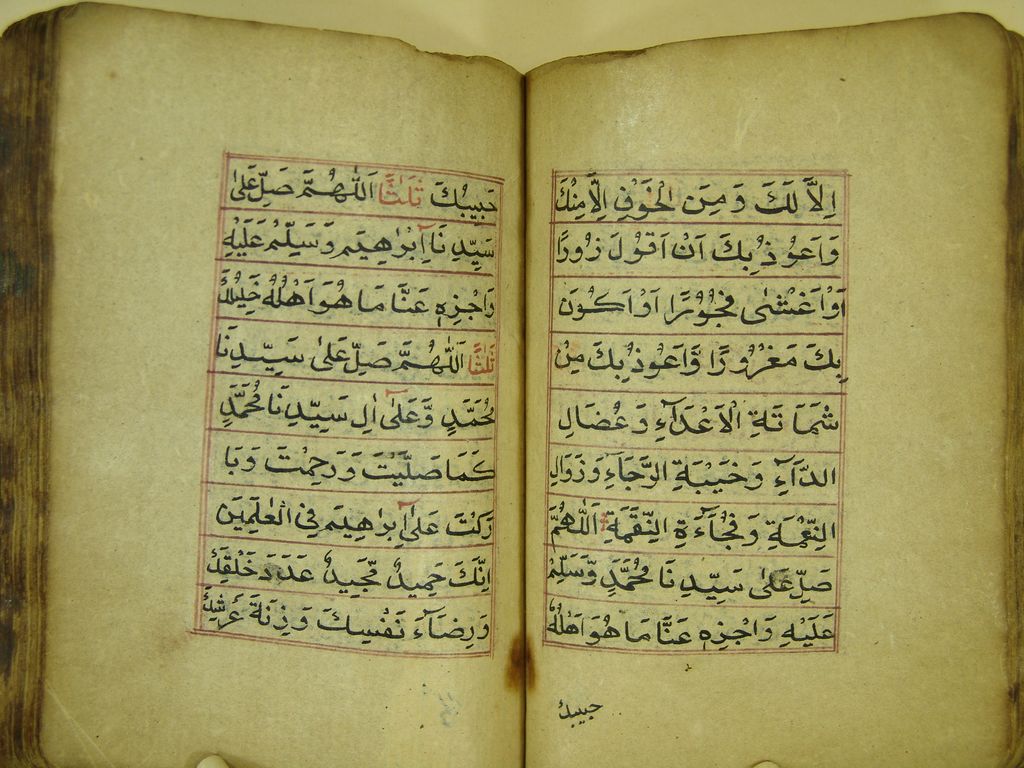 اِلَّا لَكَ وَ مِنَ الْخَوْفِ اِلَّا مِنْكَ
وَ اَعُوْذُ بِكَ اَنْ اَقُوْلَ زُوْرًا
اَوْ اَغْشٰى فُجُوْرًا اَوْ اَكُوْنَ
بِكَ مَغْرُوْرًا وَّ اَعُوْذُ بِكَ مِنْ
شَمَاتَةِ الْاَعْدَآءِ وَ عُضَالِ
الدَّآءِ وَ خَيْبَةِ الرَّجَآءِ وَ زَوَالِ
النِّعْمَةِ وَ فُجَآءَةِ النِّقْمَةِ اَللّٰهُمَّ
صَلِّ عَلٰى سَيِّدِنَا مُحَمَّدٍ وَّ سَلِّمْ
عَلَيْهِ وَ اجْزِهِ عَنَّا مَا هُوَ اَهْلُهُ
حبيبك
حَبِيْبُكَ ثَلٰثًا اَللّٰهُمَّ صَلِّ عَلٰى
سَيِّدِنَا اِبْرٰهِيْمَ وَ سَلِّمْ عَلَيْهِ
وَ اجْزِهِ عَنَّا مَا هُوَ اَهْلُهُ خَلِيْلُكَ
ثَلٰثًا اَللّٰهُمَّ صَلِّ عَلٰى سَيِّدِنَا
مُحَمَّدٍ وَّ عَلٰى اٰلِ سَيِّدِنَا مُحَمَّدٍ
كَمَا صَلَّيْتَ وَ رَحِمْتَ وَ بَا
رَكْتَ عَلٰى اِبْرٰهِيْمَ فِي الْعٰلَمِيْنَ
اِنَّكَ حَمِيْدٌ مَّجِيْدٌ عَدَدَ خَلْقِكَ
وَ رِضَآءَ نَفْسِكَ وَ زِنَةَ عَرْشِكَ